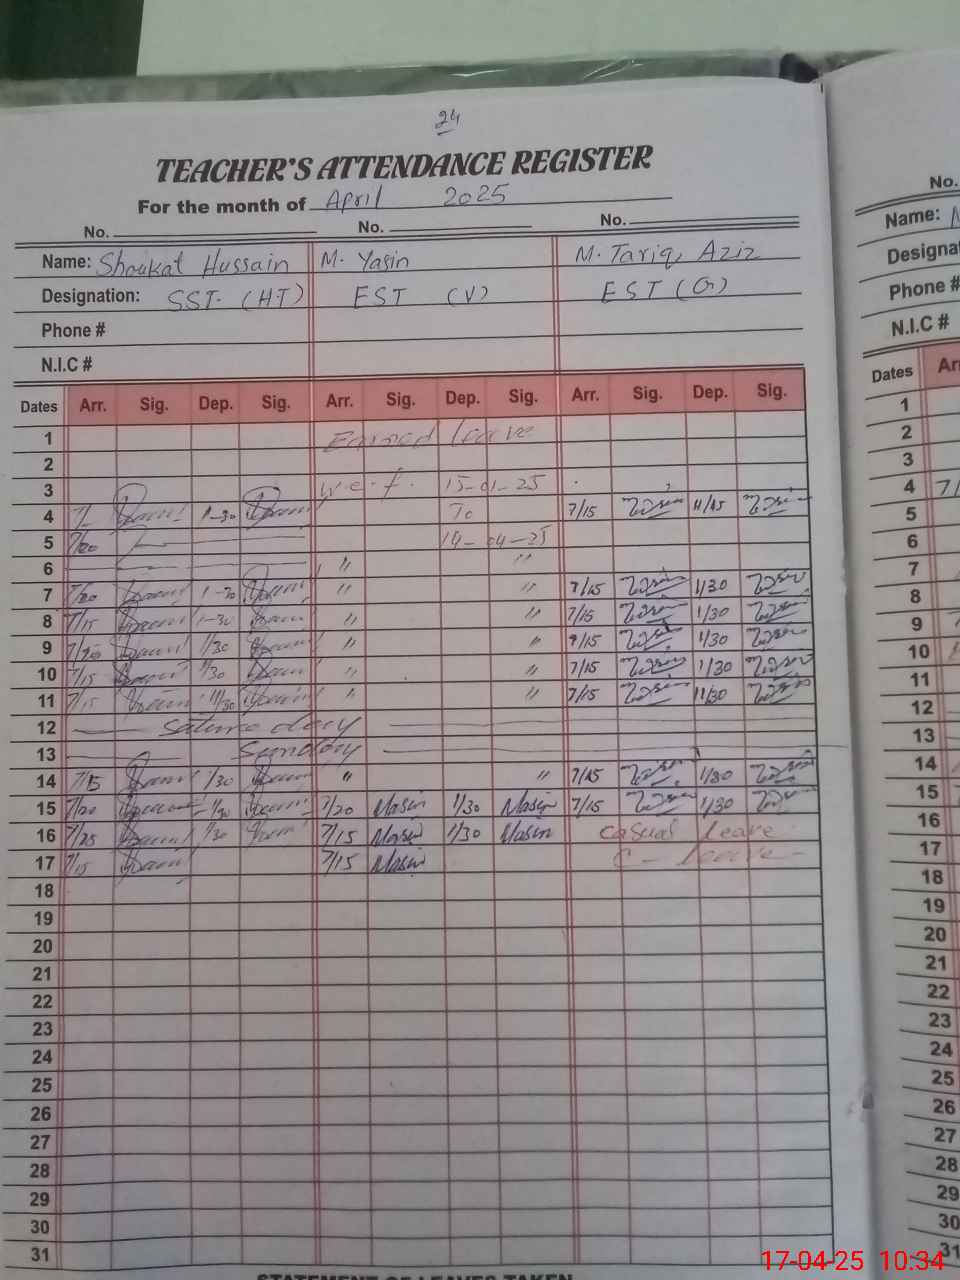 24
TEACHER'S ATTENDANCE REGISTER
For the month of April 2025
No. No. No. No.
Name: Shoukat Hussain M. Yasin M. Tariq Aziz Name:
Designation: SST. (HT) EST (V) EST (G) Designa
Phone # Phone #
N.I.C # N.I.C #
Dates Arr. Sig. Dep. Sig. Arr. Sig. Dep. Sig. Arr. Sig. Dep. Sig. Dates Arr
1 Earned leave 1
2 2
3 w.e.f. 15-01-25 3
4 7/- 1-30 To 7/15 11/45 4 7/
5 7/20 14-04-25 5
6 " " 6
7 7/20 1-30 " " 7/15 1/30 7
8 7/15 1-30 " " 7/15 1/30 8
9 7/20 1/30 " " 7/15 1/30 9
10 7/15 1/30 " " 7/15 1/30 10
11 7/15 11/30 " " 7/15 11/30 11
12 saturday 12
13 Sunday 13
14 7/15 1/30 " " 7/15 1/30 14
15 7/20 1/30 7/20 Yasin 1/30 Yasin 7/15 1/30 15
16 7/25 1/30 7/15 Yasin 1/30 Yasin casual leave 16
17 7/15 7/15 Yasin C-leave 17
18 18
19 19
20 20
21 21
22 22
23 23
24 24
25 25
26 26
27 27
28 28
29 29
30 30
31 31
STATEMENT OF LEAVES TAKEN
17-04-25 10:34